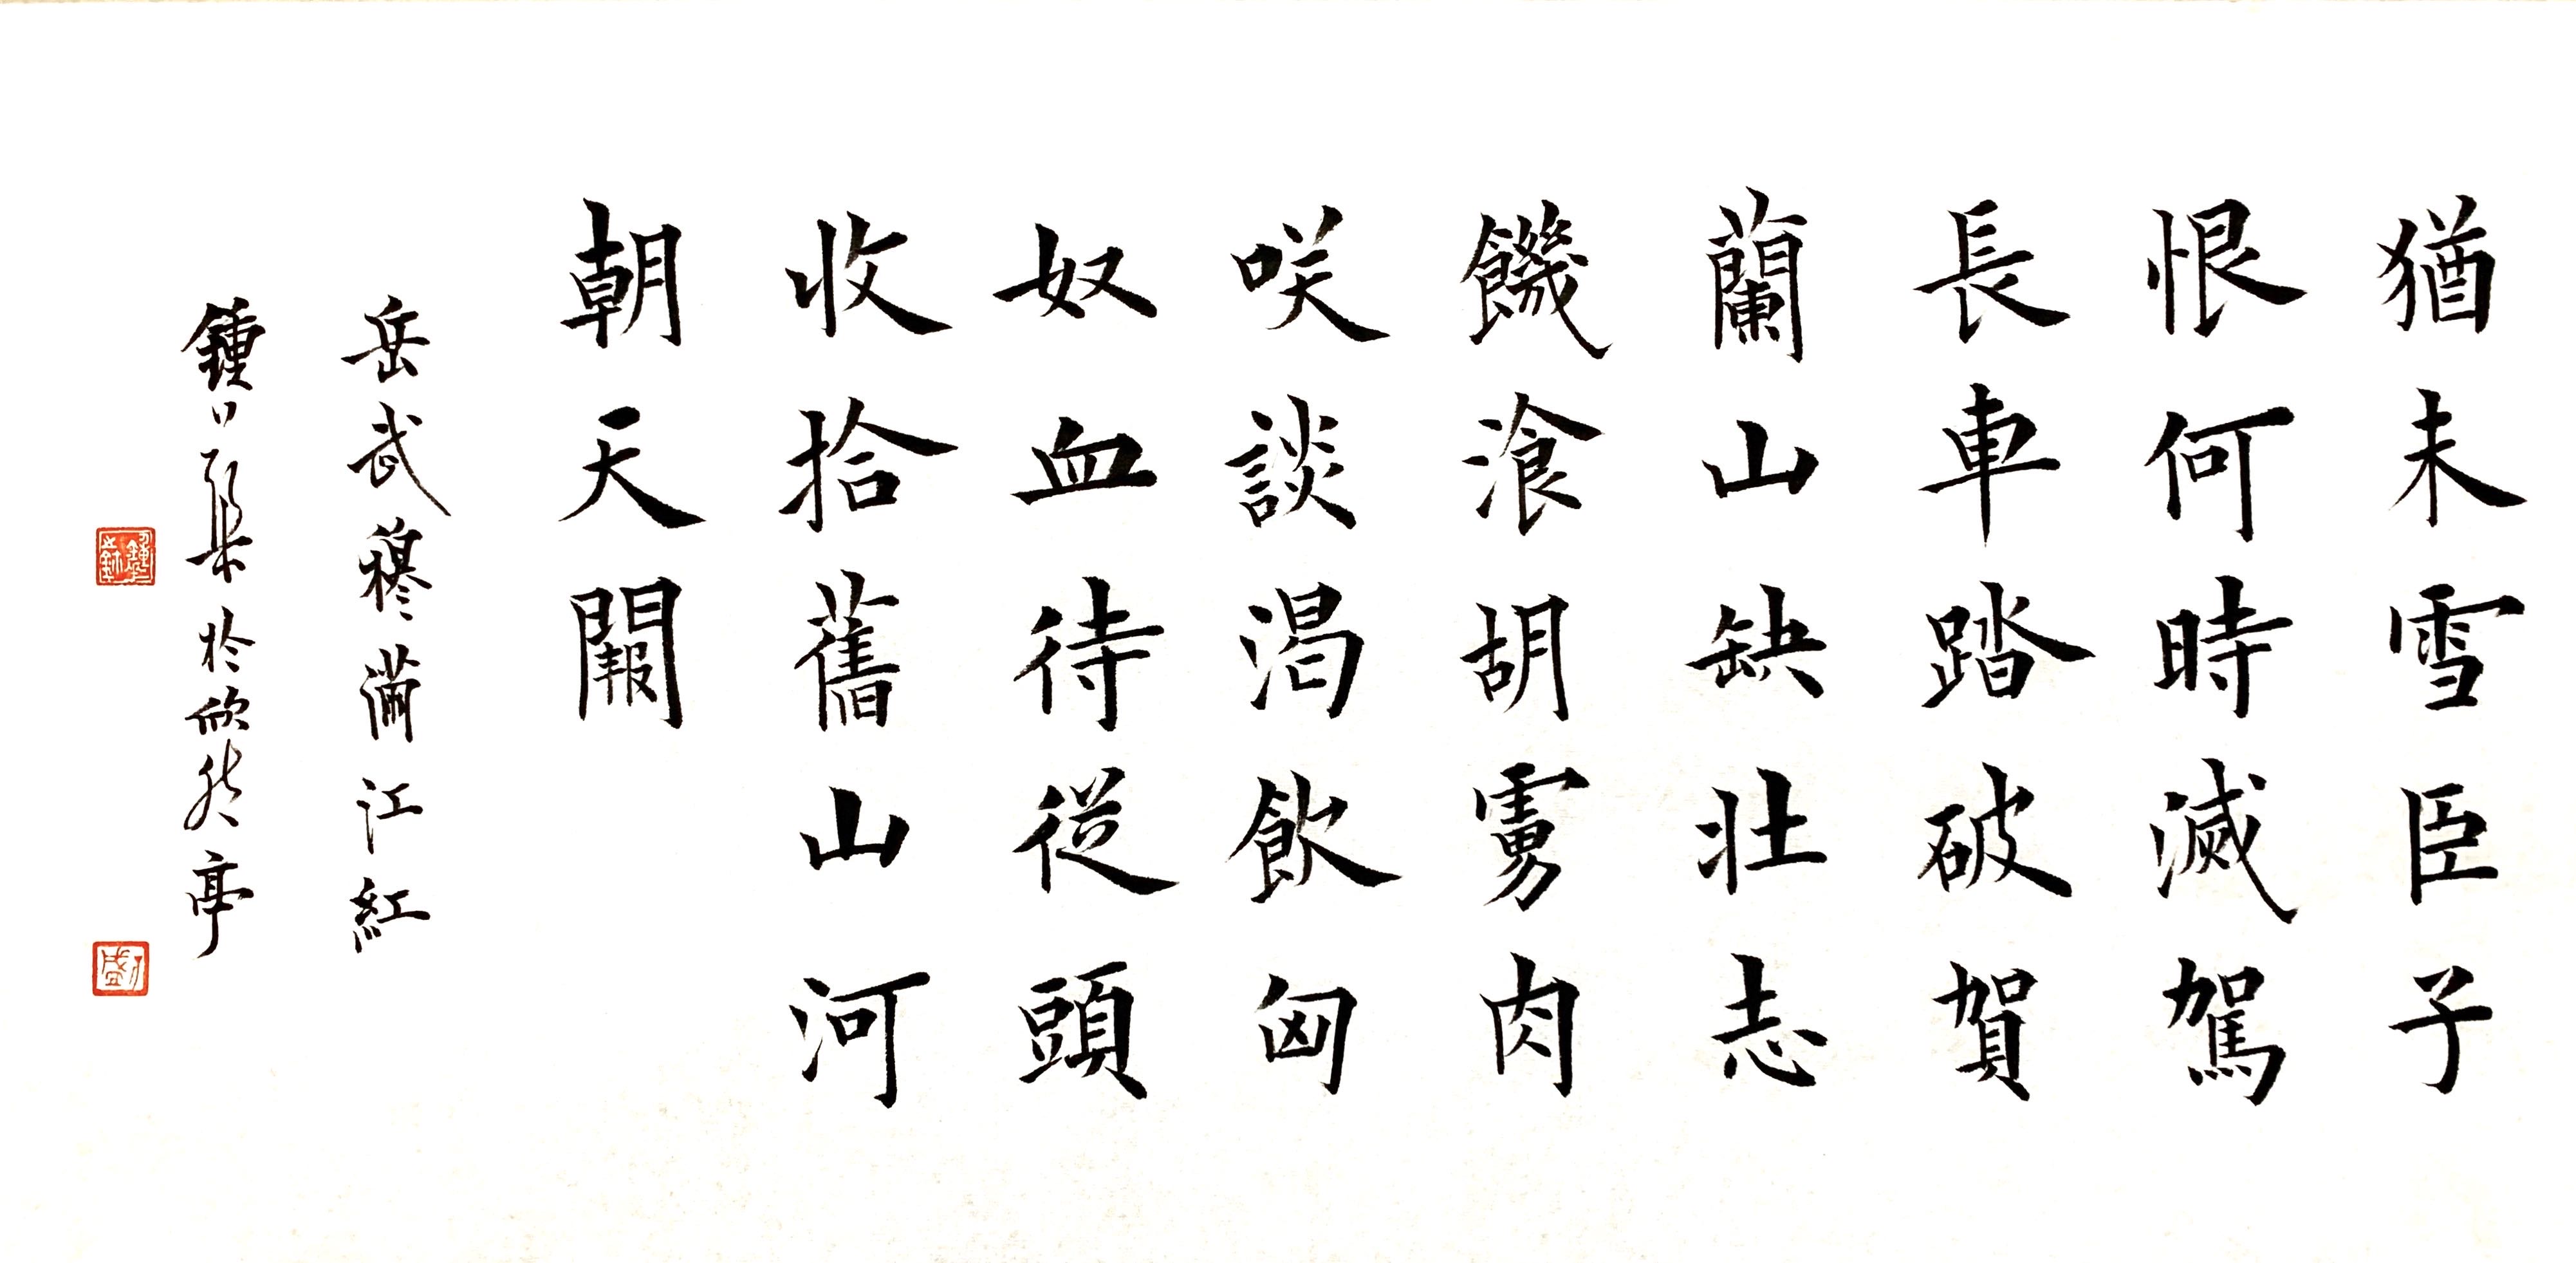 猶未雪臣子
恨何時滅駕
長車踏破賀
蘭山缺壯志
饑湌胡虜肉
咲談渴飲匈
奴血待從頭
收拾舊山河
朝天闕
岳武穆滿江紅
鍾
於欣然亭